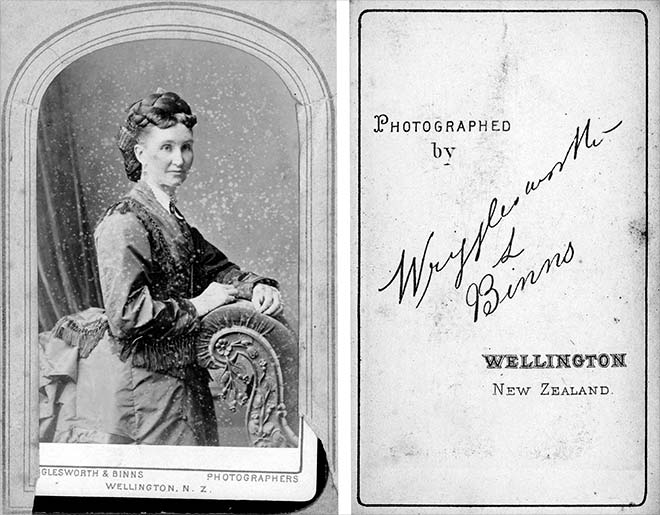 GLESWORTH & BINNS PHOTOGRAPHERS
WELLINGTON, N. Z.
PHOTOGRAPHED
by
Wrigglesworth
&
Binns
WELLINGTON
NEW ZEALAND.